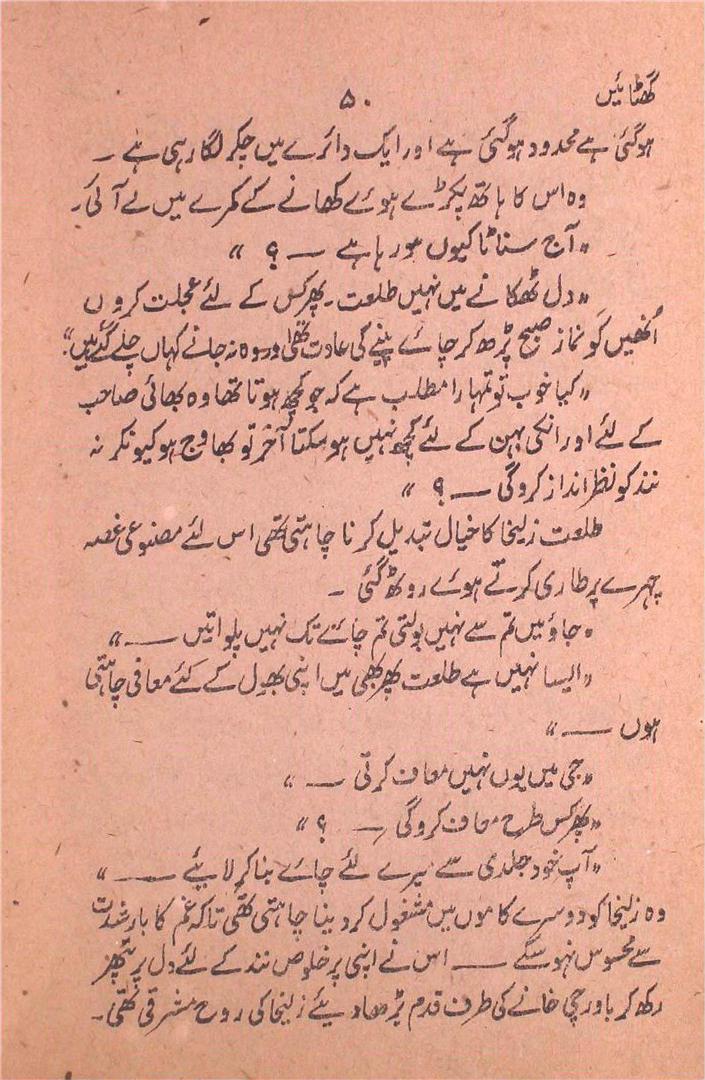 گھٹائیں
۵۰
ہو گئی ہے محدود ہو گئی ہے اور ایک دائرے میں چکر لگا رہی ہے ۔
وہ اس کا ہاتھ پکڑے ہوئے کھانے کے کمرے میں لے آئی۔
"آج سناٹا کیوں ہو رہا ہے ــــ ؟ "
"دل ٹھکانے میں نہیں طلعت ۔ پھر کس کے لئے عجلت کروں
اُنھیں کو نماز صبح پڑھ کر چائے پینے کی عادت تھی اور وہ نہ جانے کہاں چلے گئے ہیں"
"کیا خوب تو تمہارا مطلب ہے کہ جو کچھ ہوتا تھا وہ بھائی صاحب
کے لئے اور انکی بہن کے لئے کچھ نہیں ہو سکتا آخر تو بھاوج ہو کیونکر نہ
نند کو نظر انداز کرو گی ــــ ؟ "
طلعت زلیخا کا خیال تبدیل کرنا چاہتی تھی اس لئے مصنوعی غصہ
چہرے پر طاری کرتے ہوئے روٹھ گئی ۔
"جاؤ میں تم سے نہیں بولتی تم چائے تک نہیں پلواتیں ــــ"
"ایسا نہیں ہے طلعت پھر بھی میں اپنی بھول کے لئے معافی چاہتی
ہوں ــــ "
"جی میں یوں نہیں معاف کرتی ــــ "
"پھر کس طرح معاف کرو گی ــــ ؟ "
"آپ خود جلدی سے میرے لئے چائے بنا کر لایئے ــــ "
وہ زلیخا کو دوسرے کاموں میں مشغول کر دینا چاہتی تھی تاکہ غم کا بار شدت
سے محسوس نہو سکے ــــ اس نے اپنی پرخلوص نند کے لئے دل پر پتھر
رکھ کر باورچی خانے کی طرف قدم بڑھا دیئے زلیخا کی روح مشرقی تھی۔